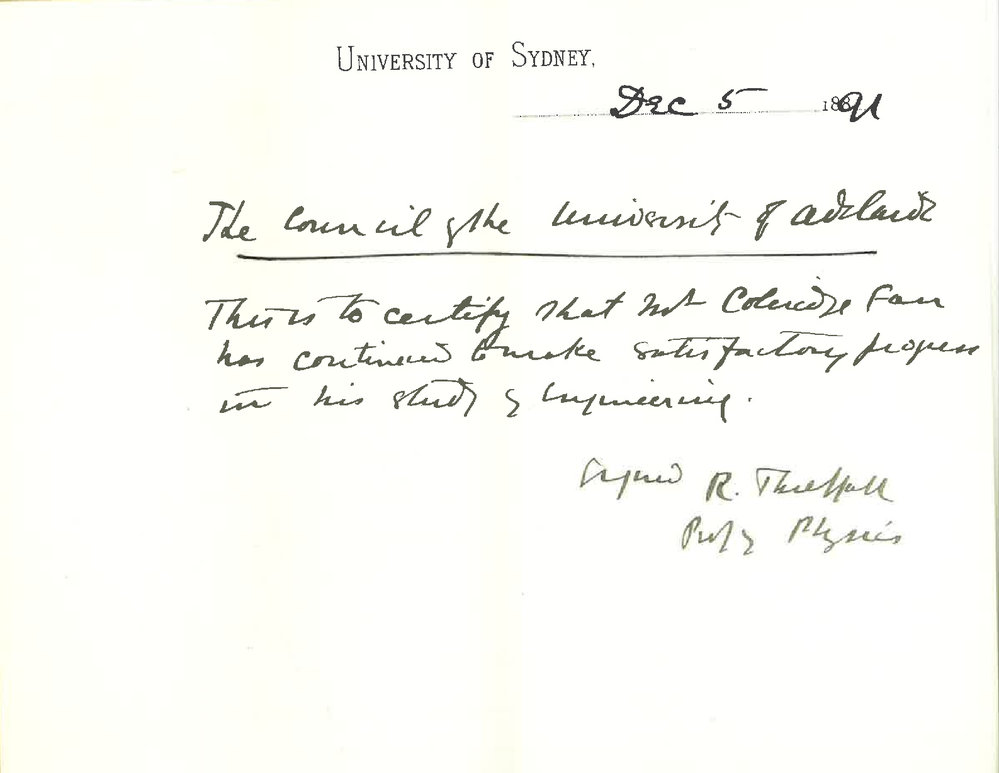 UNIVERSITY OF SYDNEY,
Dec 5 1891
The Council of the University of Adelaide
This is to certify that Mr Coleridge Farr
has continued to make satisfactory progress
in his study of Engineering.
Signed R. Threlfall
Prof of Physics